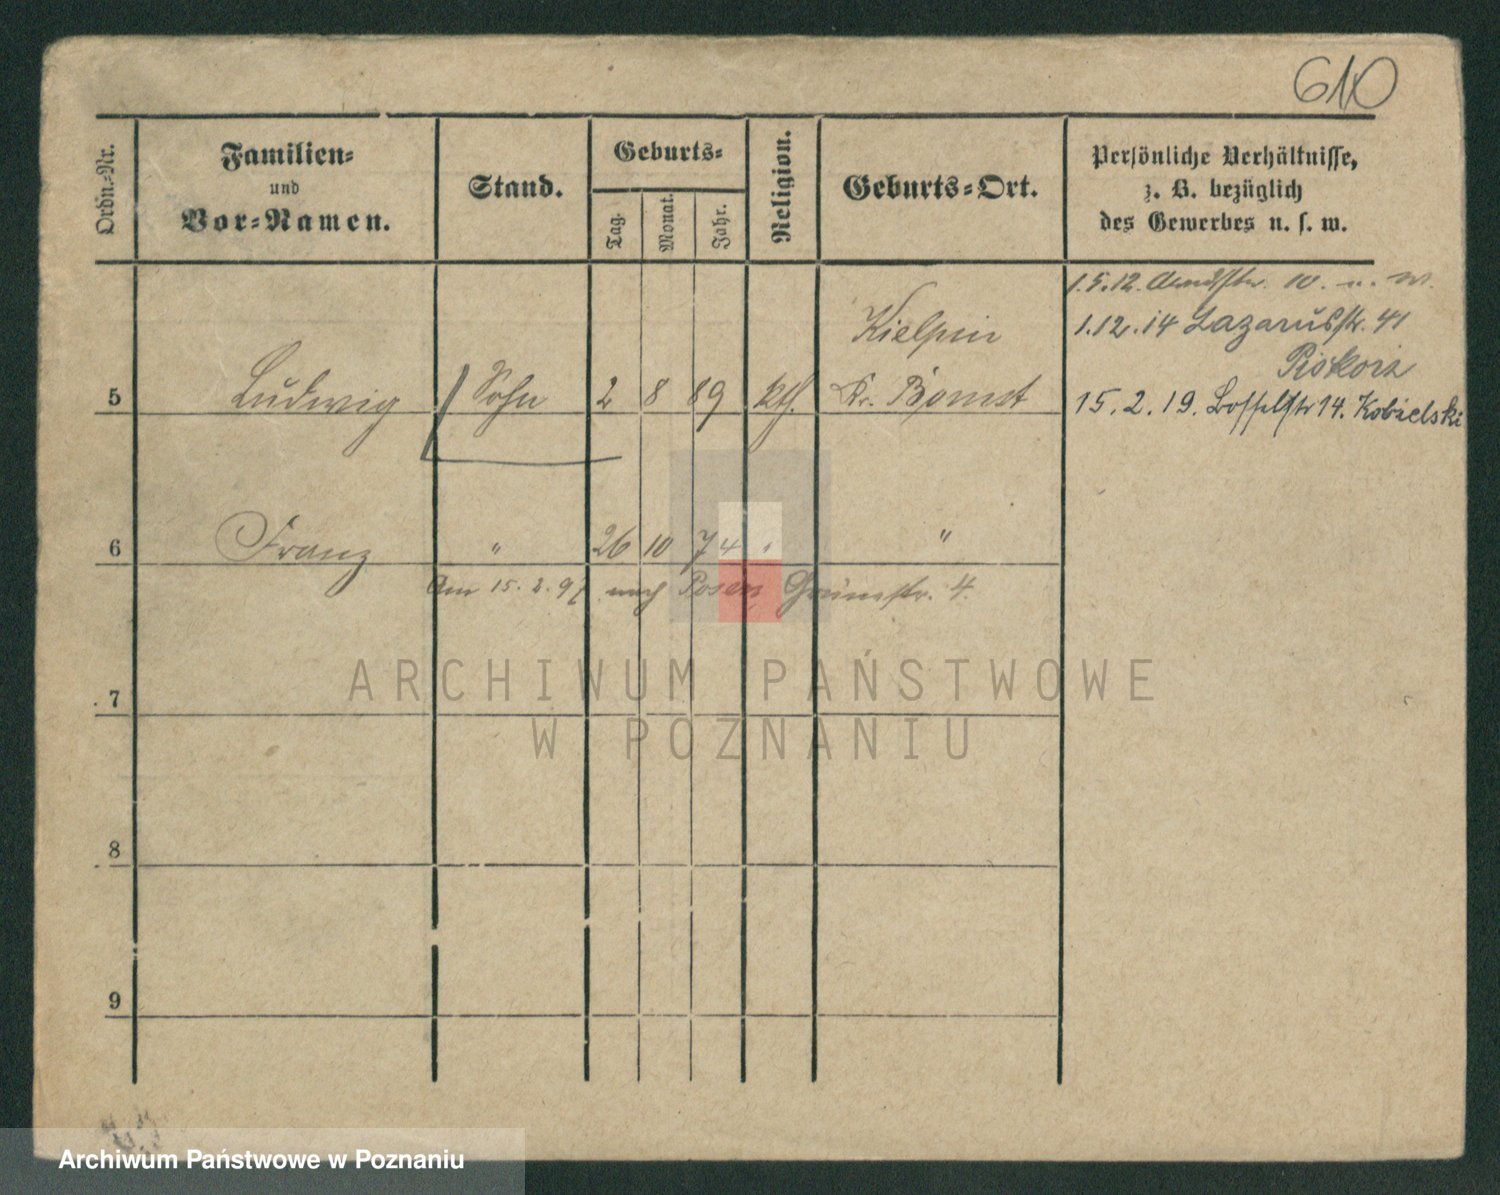 610
Ordn.-Nr.
Familien-
und
Vor-Namen.
Stand.
Geburts-
Tag.
Monat.
Jahr.
Religion.
Geburts-Ort.
Persönliche Verhältnisse,
z. B. bezüglich
des Gewerbes u. s. w.
1.5.12. 10.
1.12.14 Lazarusstr. 41
Piskorz
15.2.19. 14. Kobielski
5 Ludwig Sohn 2 8 89 kth. Kielpin
Kr. Bomst
6 Franz " 26 10 74 " "
Am 15.2.97 nach Posen, Grünstr. 4.
7
8
9
ARCHIWUM PAŃSTWOWE
W POZNANIU
Archiwum Państwowe w Poznaniu